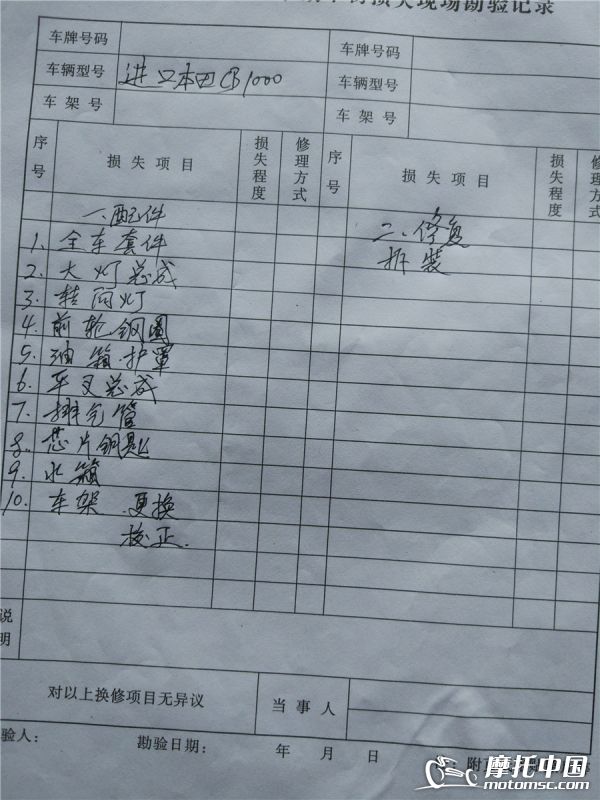 损失现场勘验记录
车牌号码 车牌号码
车辆型号 进口本田CB1000 车辆型号
车架号 车架号
序号 损失项目 损失程度 修理方式 序号 损失项目 损失程度 修理方式
一、配件 二、修复
1. 全车套件 拆装
2. 大灯总成
3. 转向灯
4. 前轮钢圈
5. 油箱护罩
6. 平叉总成
7. 排气管
8. 芯片钥匙
9. 水箱
10. 车架 更换
校正
说明
对以上换修项目无异议 当事人
验人: 勘验日期: 年 月 日 附
摩托中国
motomsc.com